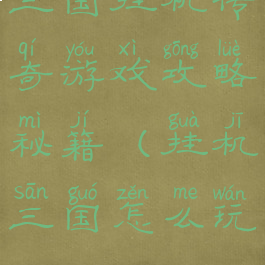 三国挂机传
qí yóu xì gōng luè
奇游戏攻略
mì jí guà jī
秘籍（挂机
sān guó zěn me wán
三国怎么玩